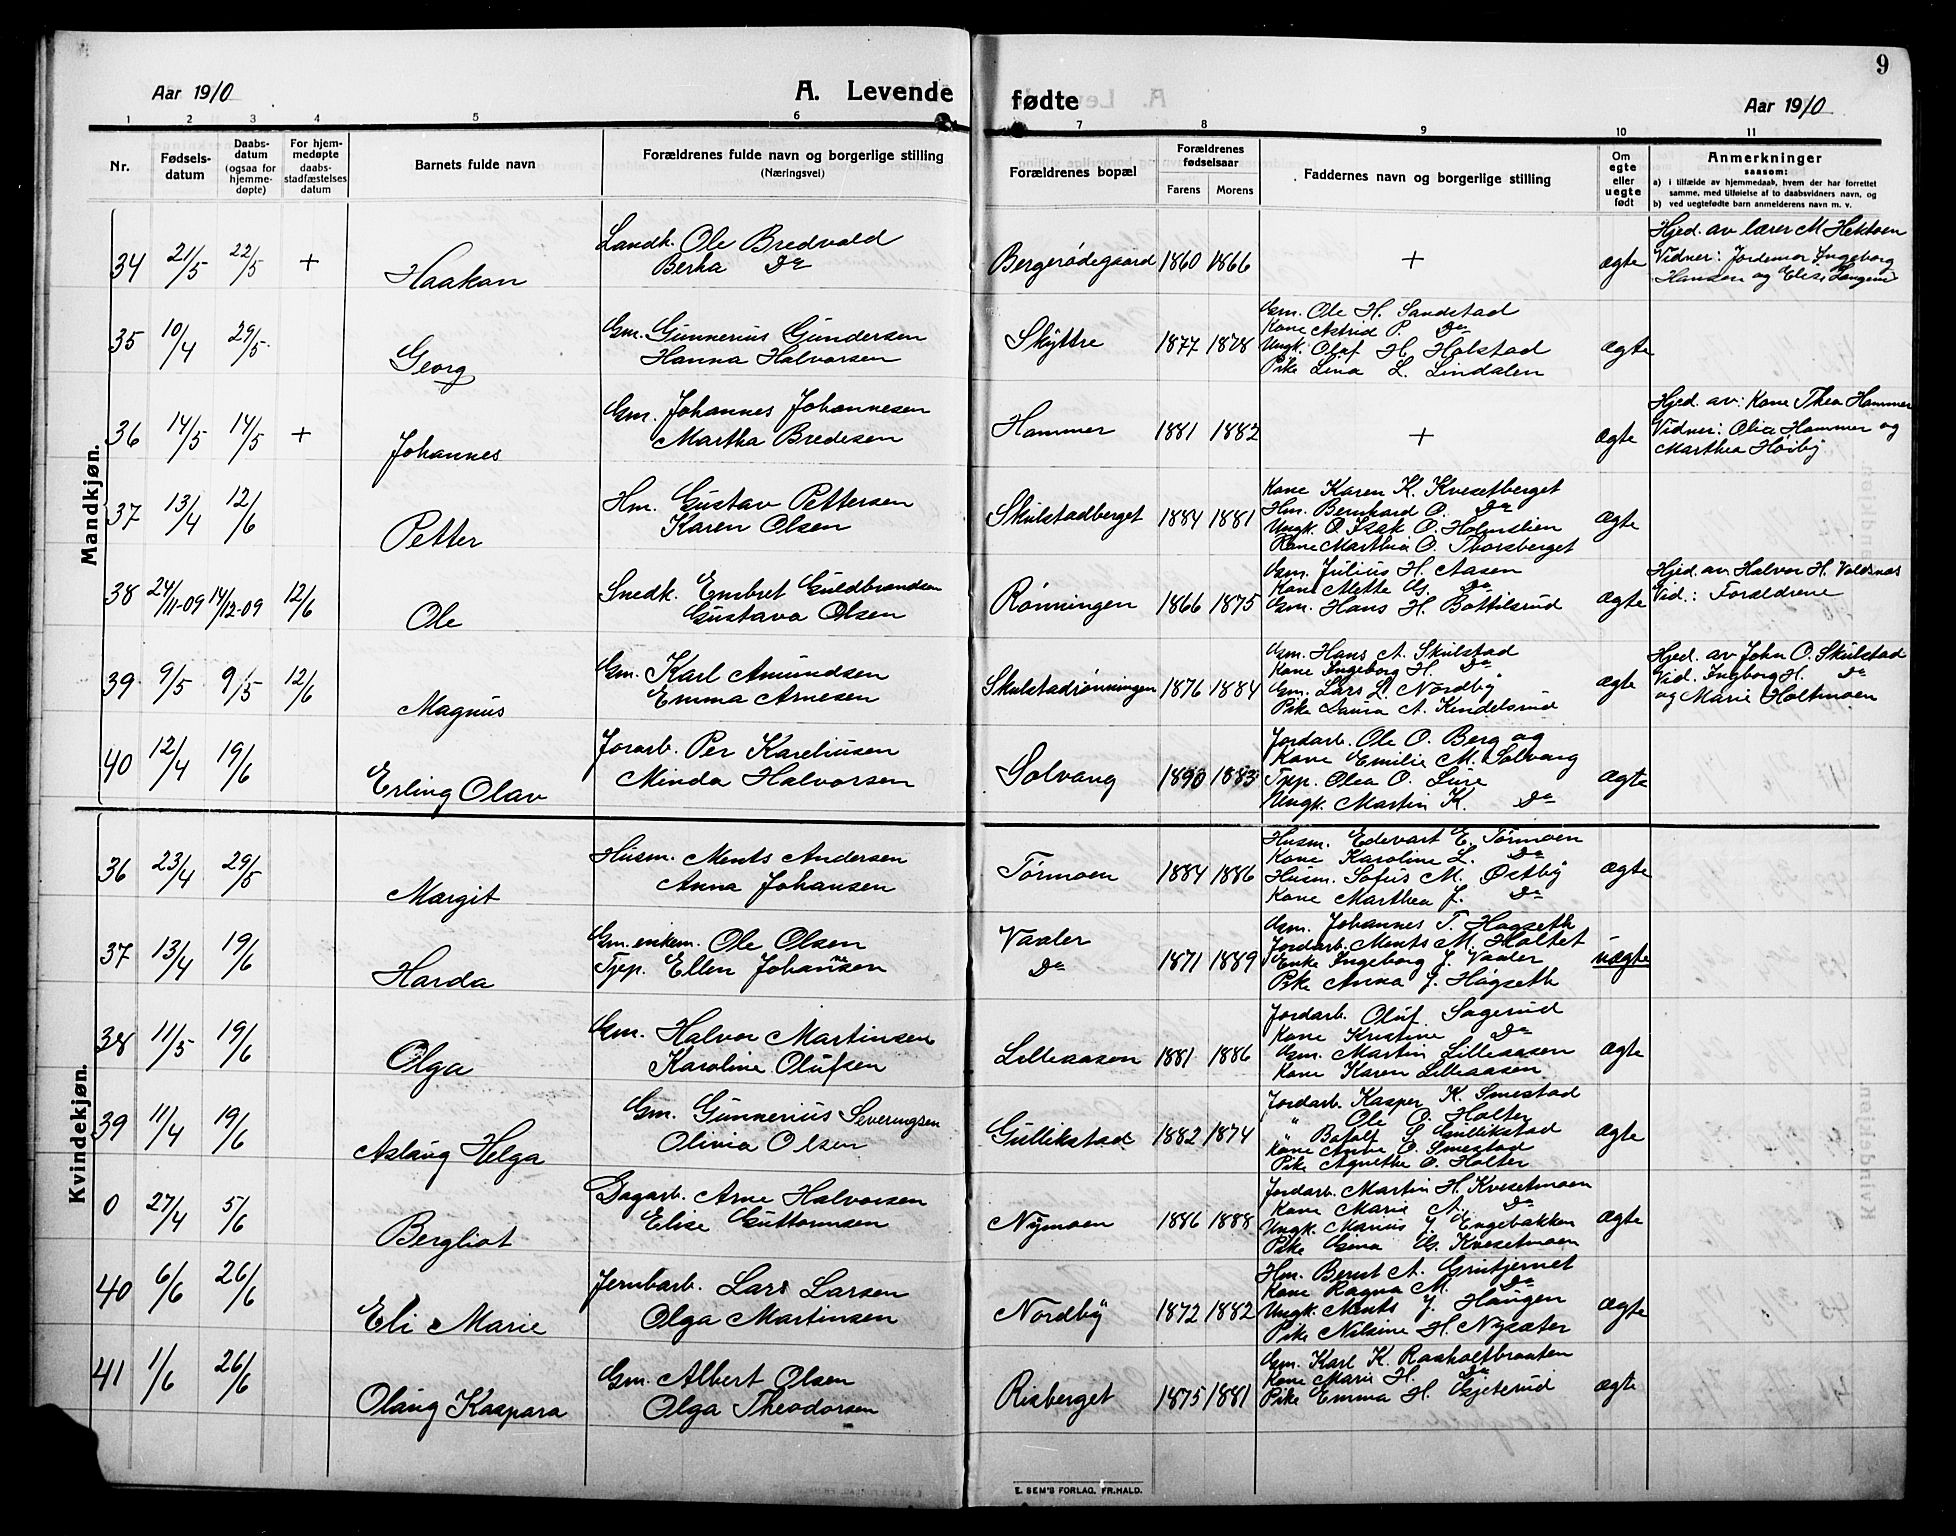 9
Aar 1910
A. Levende fødte
Aar 1910
1 2 3 4 5 6 7 8 9 10 11
Nr.
Fødsels-
datum
Daabs-
datum
(ogsaa for
hjemme-
døpte)
For hjem-
medøpte
daabs-
stadfæstelses
datum
Barnets fulde navn
Forældrenes fulde navn og borgerlige stilling
(Næringsvei)
Forældrenes bopæl
Forældrenes
fødselsaar
Farens Morens
Faddernes navn og borgerlige stilling
Om
egte
eller
uegte
født
Anmerkninger
saasom:
a) i tilfælde av hjemmedaab, hvem der har forrettet
samme, med tilføielse af to daabsvidners navn, og
b) ved uegtefødte barn anmelderens navn m. v.
Mandkjøn.
34 21/5 22/5 + Haakan
Landh. Ole Bredvold
Berha Do
Bergerødegaard 1860 1866 + ægte
Hjed. av lærer M Hektoen
Vidner: Jordemor Ingeborg
Hansen og Elise Langerud
35 10/4 29/5 Georg
Gm. Gunnerius Gundersen
Hanna Halvorsen
Skyttre 1877 1878
Gm. Ole H. Sandstad
Kone Astrid P. Do
Ungk. Oluf H. Holstad
Pike Lina L. Lindalen
ægte
36 14/5 14/5 + Johannes
Gm. Johannes Johannesen
Martha Bredesen
Hammer 1881 1882 + ægte
Hjed. av: Kone Thea Hammer
Vidner: Olia Hammer og
Marthea Høiby
37 13/4 12/6 Petter
Hm. Gustav Pettersen
Karen Olsen
Skulstadberget 1884 1881
Kone Karen K. Kvesetberget
Hm. Bernhard O. Do
Ungk. O Isak O. Holmslien
Kone Marthia O. Thorsberget
ægte
38 24/11-09 14/12-09 12/6 Ole
Snedk. Embret Guldbrandsen
Gustava Olsen
Rønningen 1866 1875
Gm. Julius H. Aasen
Kone Mette G. Do
Gm. Hans H. Bottilsrud
ægte
Hjed. av Halvor H. Voldsnes
Vid.: Forældrene
39 9/5 9/5 12/6 Magnus
Gm. Karl Amundsen
Emma Arnesen
Skulstadrønningen 1876 1884
Gm. Hans A. Skulstad
Kone Ingeborg H. Do
Gm. Lars L. Nordby
Pike Laura A. Kindelsrud
ægte
Hjed. av John O. Skulstad
Vid. Ingborg H. Do
og Marie Holtmoen
40 12/4 19/6 Erling Olav
Jorarb. Per Kareliusen
Minda Halvorsen
Solvang 1890 1883
Jordarb. Ole O. Berg og
Kone Emilie M. Solvang
Tjep. Olea O. Lure
Ungk. Martin K. Do
ægte
Kvindekjøn.
36 23/4 29/5 Margit
Husm. Ments Andersen
Anna Johansen
Tørmoen 1884 1886
Husm. Edevart E. Tørmoen
Kone Karoline L. Do
Husm. Sofus M. Østby
Kone Marthea J. Do
ægte
37 13/4 19/6 Harda
Gm. enkem. Ole Olsen
Tjep. Ellen Johansen
Vaaler
Do
1871 1889
Gm. Johannes T. Hagseth
Jordarb. Ments M. Holtet
Enke Ingeborg J. Vaaler
Pike Anna J. Høgseth
uægte
38 11/5 19/6 Olga
Gm. Halvor Martinsen
Karoline Olufsen
Lilleaasen 1881 1886
Jordarb. Oluf Sagerud
Kone Kristine Do
Gm. Martin Lilleaasen
Kone Karen Lilleaasen
ægte
39 11/4 19/6 Aslaug Helga
Gm. Gunnerius Severingsen
Olivia Olsen
Gullikstad 1882 1874
Jordarb. Kasper K. Smestad
" Ole O. Holter
" Botolf S. Gullikstad
Kone Anne O. Smestad
Pike Agnethe O. Holter
ægte
0 27/4 5/6 Bergliot
Dagarb. Arne Halvorsen
Elise Guttormsen
Nymoen 1886 1888
Jordarb. Martin H. Kvesetmoen
Kone Marie A. Do
Ungk. Marius J. Engebakken
Pike Gina G. Kvesetmoen
ægte
40 6/6 26/6 Eli Marie
Jernbarb. Lars Larsen
Olga Martinsen
Nordby 1872 1882
Hm. Bernt A. Grutjernet
Kone Ragna M. Do
Ungk. Ments J. Haugen
Pike Nilsine H. Nysæter
ægte
41 1/6 26/6 Olaug Kaspara
Gm. Albert Olsen
Olga Theodorsen
Risberget 1875 1881
Gm. Karl K. Raaholtbraaten
Kone Marie H. Do
Pike Emma H. Gjeterud
ægte
E. SEM'S FORLAG, FR.HALD.